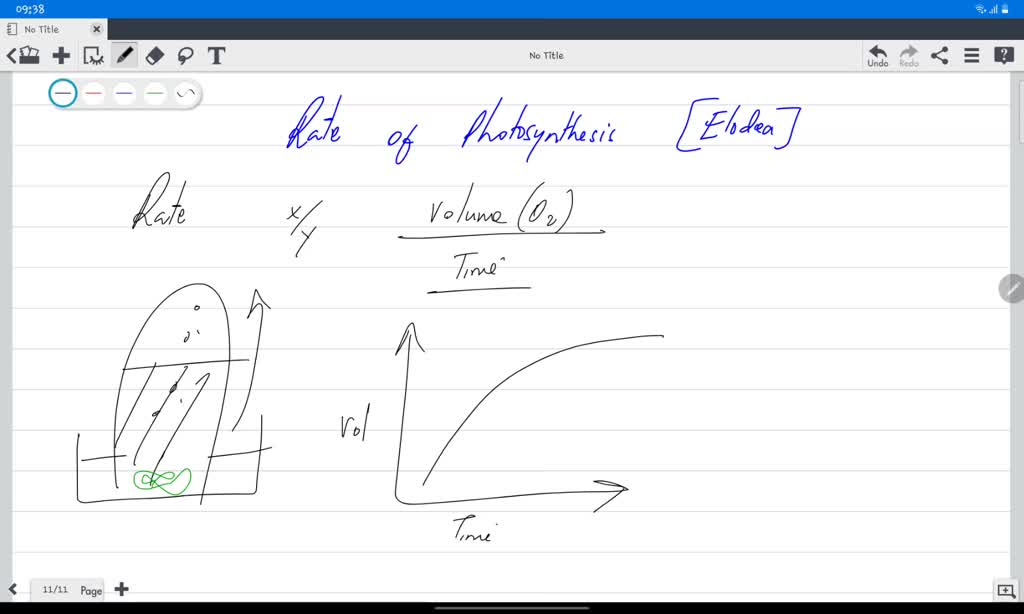 09:38
No Title
T No Title Undo Redo
Rate of Photosynthesis [Elodea]
Rate x/y Volume (O2)
Time
Vol
Time
11/11 Page